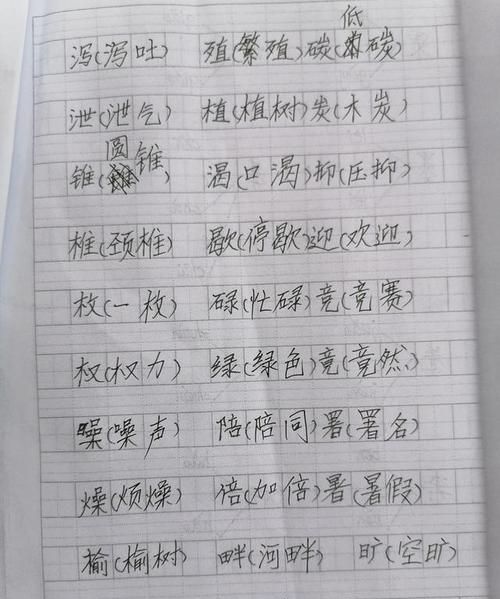 泻(泻吐) 殖(繁殖)碳(低碳)
泄(泄气) 植(植树)炭(木炭)
锥(圆锥) 渴(口渴)抑(压抑)
椎(颈椎) 歇(停歇)迎(欢迎)
枚(一枚) 碌(忙碌)竞(竞赛)
权(权力) 绿(绿色)竟(竟然)
噪(噪声) 陪(陪同)署(署名)
燥(烦燥) 倍(加倍)署(暑假)
榆(榆树) 畔(河畔) 旷(空旷)